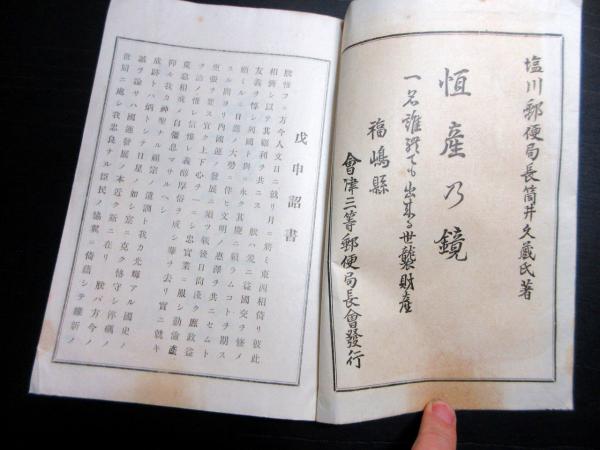 塩川郵便局長筒井文蔵氏著
恒産乃鏡
一名誰れでも出来る世襲財産
福嶋縣
會津三等郵便局長會發行
戊申詔書
朕惟フニ方今人文日ニ就リ月ニ將ミ東西相倚リ彼此
相濟シ以テ其福利ヲ共ニス朕ハ爰ニ益國交ヲ修メ
友義ヲ惇シ列國ト與ニ永ク其慶ニ頼ラムコトヲ期ス
顧ミルニ日進ノ大勢ニ伴ヒ文明ノ惠澤ヲ共ニセムト
スル固ヨリ内國運ノ發展ニ須ツ戰後日尚淺ク庶政益
更張ヲ要ス宜ク上下心ヲ一ニシ忠實業ニ服シ勤儉産
ヲ治メ惟レ信惟レ義醇厚俗ヲ成シ華ヲ去リ實ニ就キ
荒怠相誡メ自彊息マサルヘシ
抑我カ神聖ナル祖宗ノ遺訓ト我カ光輝アル國史ノ
成跡トハ炳トシテ日星ノ如シ寔ニ克ク恪守シ淬礪ノ
誠ヲ諭サハ國運發展ノ本近ク斯ニ在リ朕ハ方今ノ
世局ニ處シ我カ忠良ナル臣民ノ協翼ニ倚藉シテ維新ノ